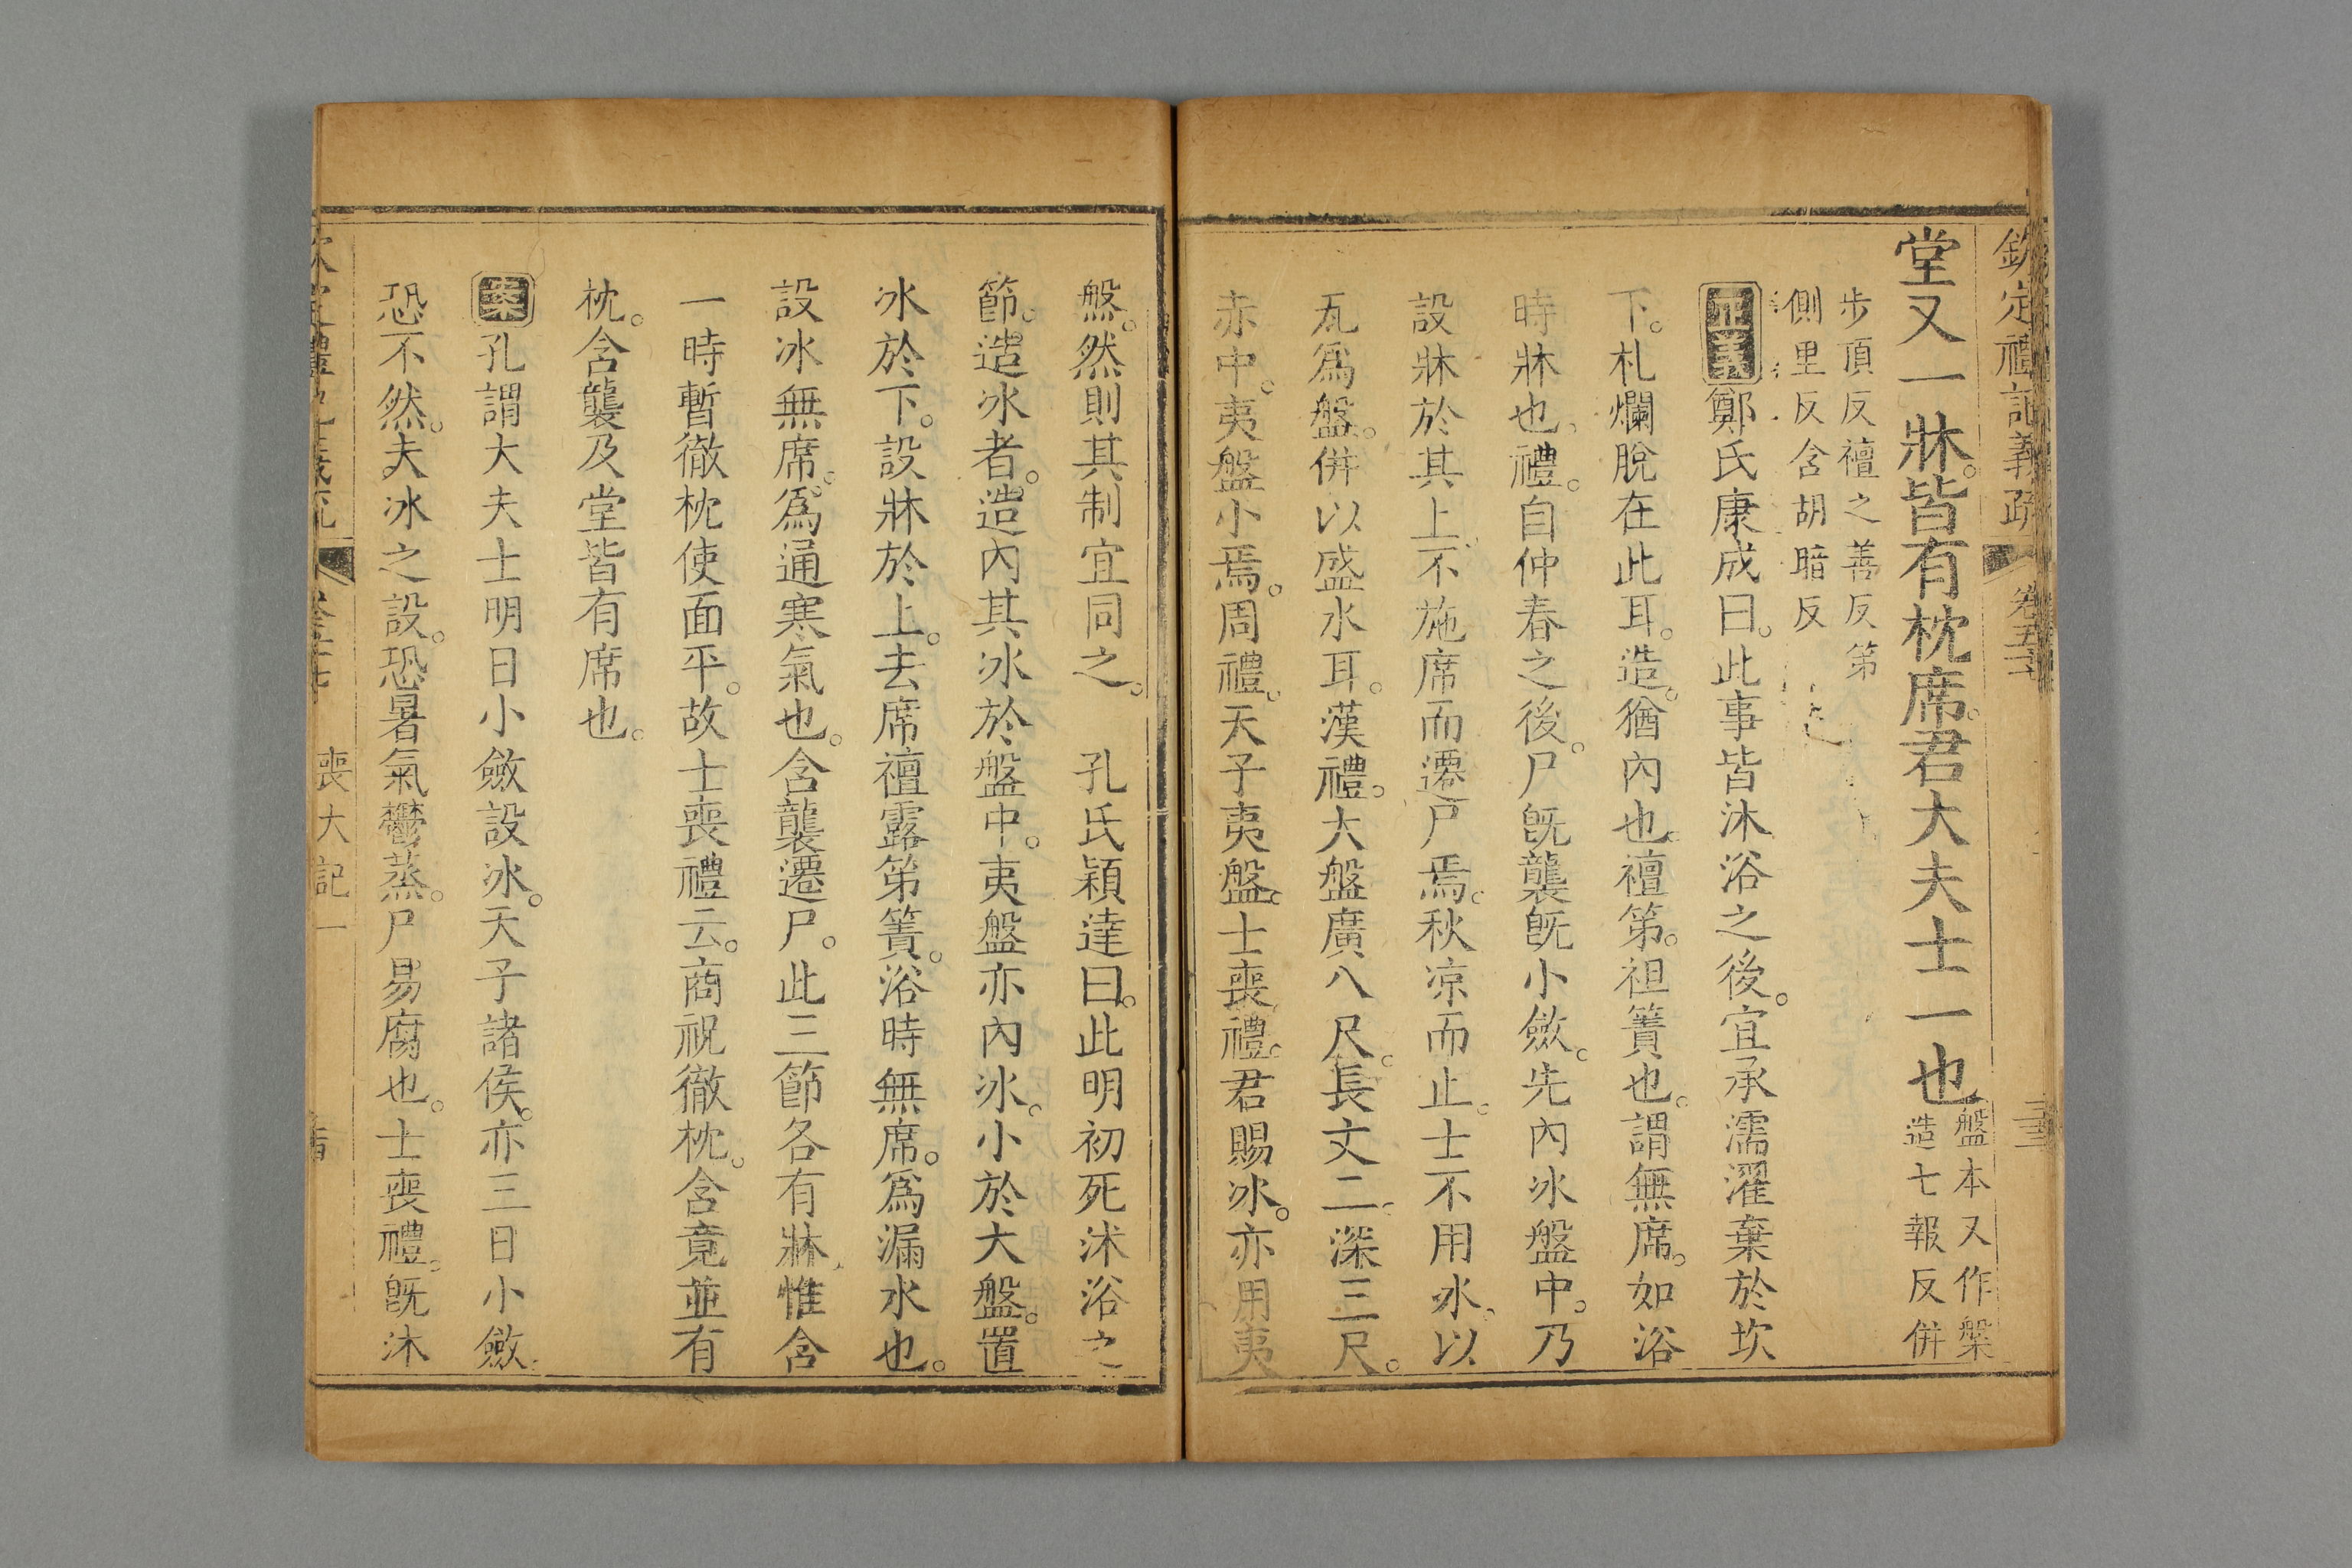 欽定禮記義疏 卷五十
堂又一牀。皆有枕席。君大夫士一也 盤本又作槃
造七報反併
步頂反襢之善反第
側里反含胡暗反
正義 鄭氏康成曰。此事皆沐浴之後。宜承濡濯棄於坎
下。札爛脫在此耳。造。猶內也。襢第。袒簀也。謂無席。如浴
時牀也。禮。自仲春之後。尸旣襲旣小斂。先內冰盤中。乃
設牀於其上。不施席而遷尸焉。秋凉而止。士不用冰。以
瓦爲盤。併以盛水耳。漢禮。大盤廣八尺。長丈二。深三尺。
赤中。夷盤小焉。周禮。天子夷盤。士喪禮。君賜冰。亦用夷
盤。然則其制宜同之。 孔氏穎達曰。此明初死沐浴之
節。造冰者。造內其冰於盤中。夷盤亦內冰。小於大盤。置
冰於下。設牀於上。去席襢露第簀。浴時無席。爲漏水也。
設冰無席。爲通寒氣也。含襲遷尸。此三節各有牀。惟含
一時暫徹枕使面平。故士喪禮云。商祝徹枕。含竟並有
枕。含襲及堂皆有席也。
案 孔謂大夫士明日小斂設冰。天子諸侯。亦三日小斂。
恐不然。夫冰之設。恐暑氣鬱蒸。尸易腐也。士喪禮。旣沐
喪大記一